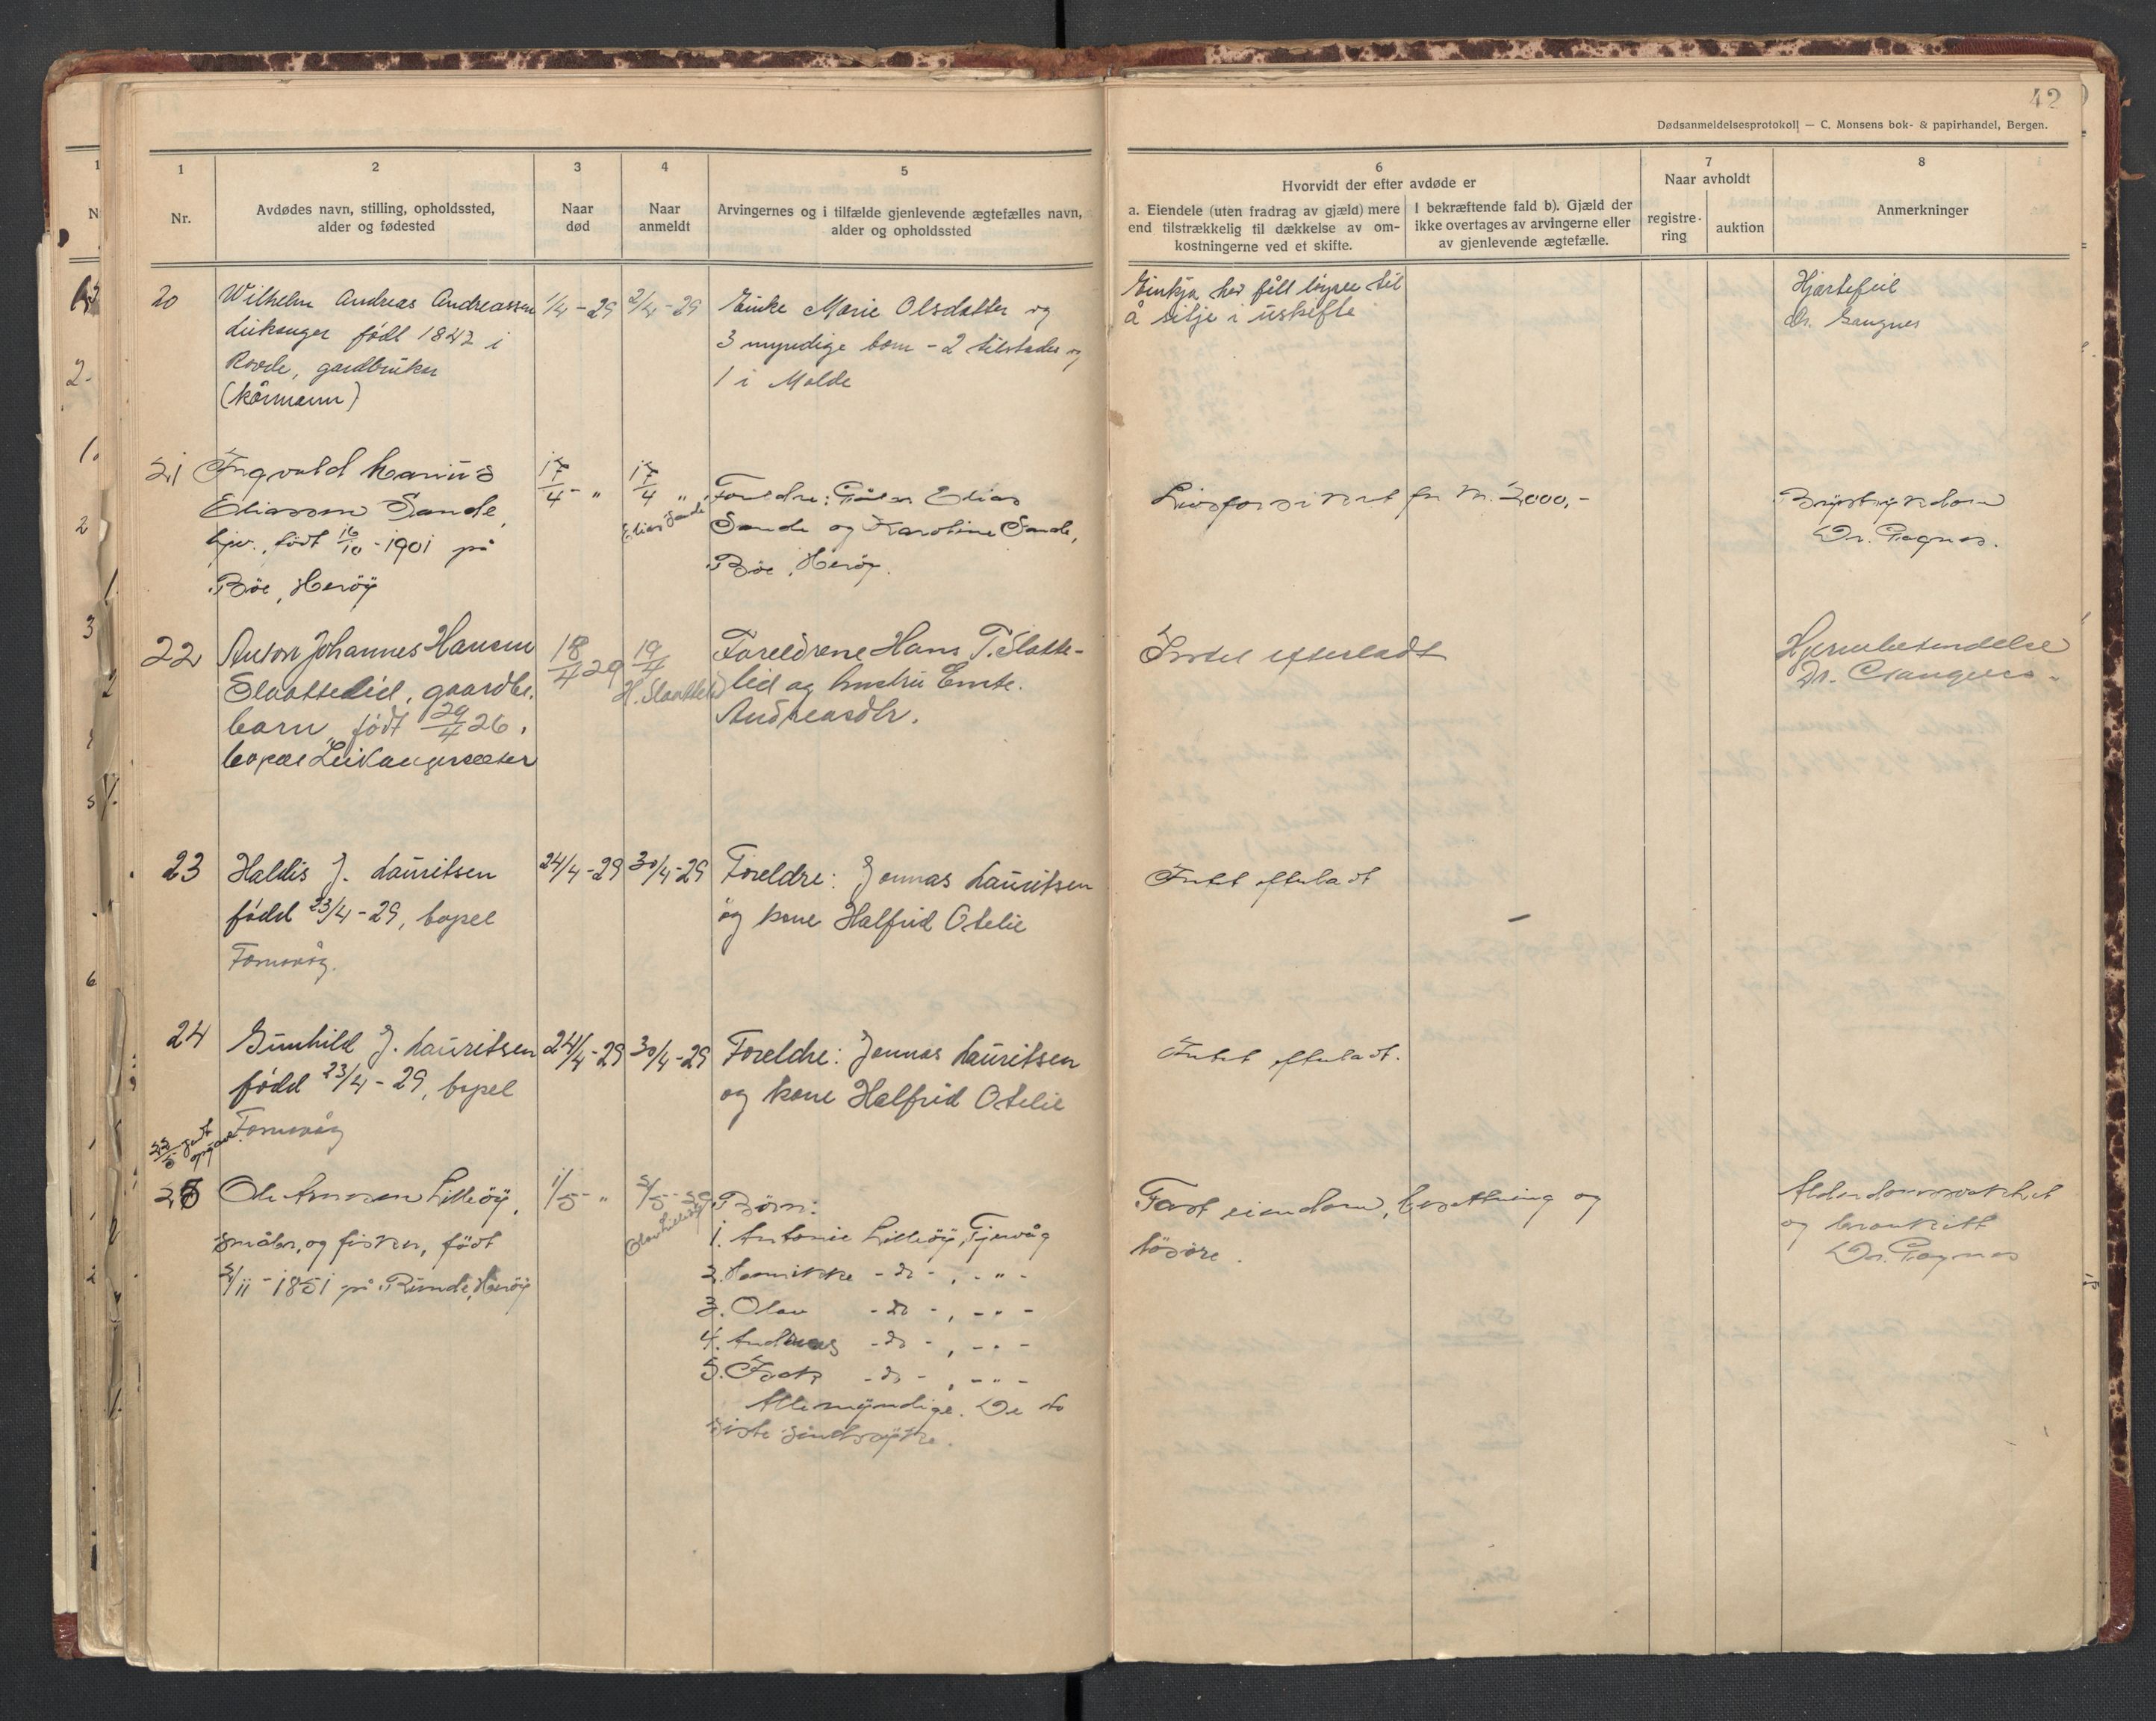 42
Dødsanmeldelsesprotokoll — C. Monsens bok- & papirhandel, Bergen.
1
Nr.
2
Avdødes navn, stilling, opholdssted,
alder og fødested
3
Naar
død
4
Naar
anmeldt
5
Arvingernes og i tilfælde gjenlevende ægtefælles navn,
alder og opholdssted
6
Hvorvidt der efter avdøde er
a. Eiendele (uten fradrag av gjæld) mere
end tilstrækkelig til dækkelse av om-
kostningerne ved et skifte.
I bekræftende fald b). Gjæld der
ikke overtages av arvingerne eller
av gjenlevende ægtefælle.
7
Naar avholdt
registre-
ring
auktion
8
Anmerkninger
20
Wilhelm Andreas Andreassen
Leikanger født 1842 i
Rovde, gardbruker
(kårmann)
1/4-29
2/4-29
Enke Marie Olsdatter og
3 myndige born - 2 tilstades og
1 i Molde
Einkja har fått løyve til
å sitja i uskifte
Hjartefeil
dr.
21
Ingvald Marius
Eliassen Sande,
født 16/10-1901 på
Bøe, Herøy
17/4- "
17/4 "
Elias Sande
Foreldre: Elias
Sande og Karoline Sande,
Bøe, Herøy.
Livsforsikret for kr. 2000,-
Brystsykdom
Dr.
22
Anton Johannes Hansen
Slaattelid, gaardbr.
barn, født 29/4 26.
bopæl Leikangersæter
18/4 29
19/4
H. Slaattelid
Foreldrene Hans T. Slatte-
lid og hustru Emte.
Andreasdtr.
Intet efterladt
Hjernebetendelse
Dr.
23
Haldis J. Lauritsen
født 23/4-29, bopel
Fosnavåg.
24/4-29
30/4-29
Foreldre: Jonnas Lauritsen
og kone Halfrid Otelie
Intet efterladt
24
Gunhild J. Lauritsen
født 23/4-29, bopel
Fosnavåg
24/4-29
30/4-29
Foreldre: Jonnas Lauritsen
og kone Halfrid Otelie
Intet efterladt.
25
Ole Lilleøy,
småbr. og fisker, født
2/11-1851 på Runde, Herøy
1/5- "
2/5-29
Olav Lilleøy
Børn:
1. Antonie Lilleøy, Tjervåg
2. Hennikke -do-, - " -
3. Olav -do-, - " -
4. Andreas -do-, - " -
5. Isak -do-, - " -
Alle myndige. De to
siste sindssyke.
Fast eiendom, besetning og
løsøre.
Alderdomssvakhet
og bronkitt
Dr.